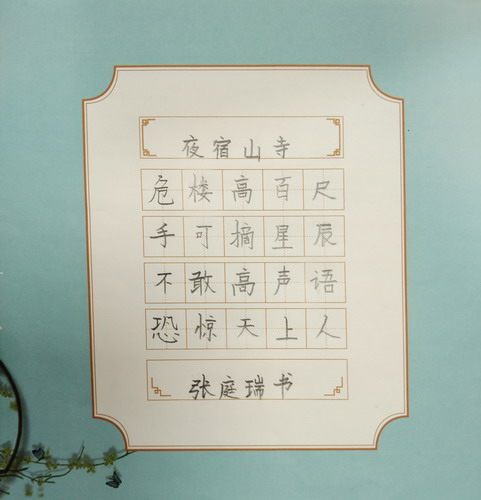 夜宿山寺
危楼高百尺
手可摘星辰
不敢高声语
恐惊天上人
张庭瑞书